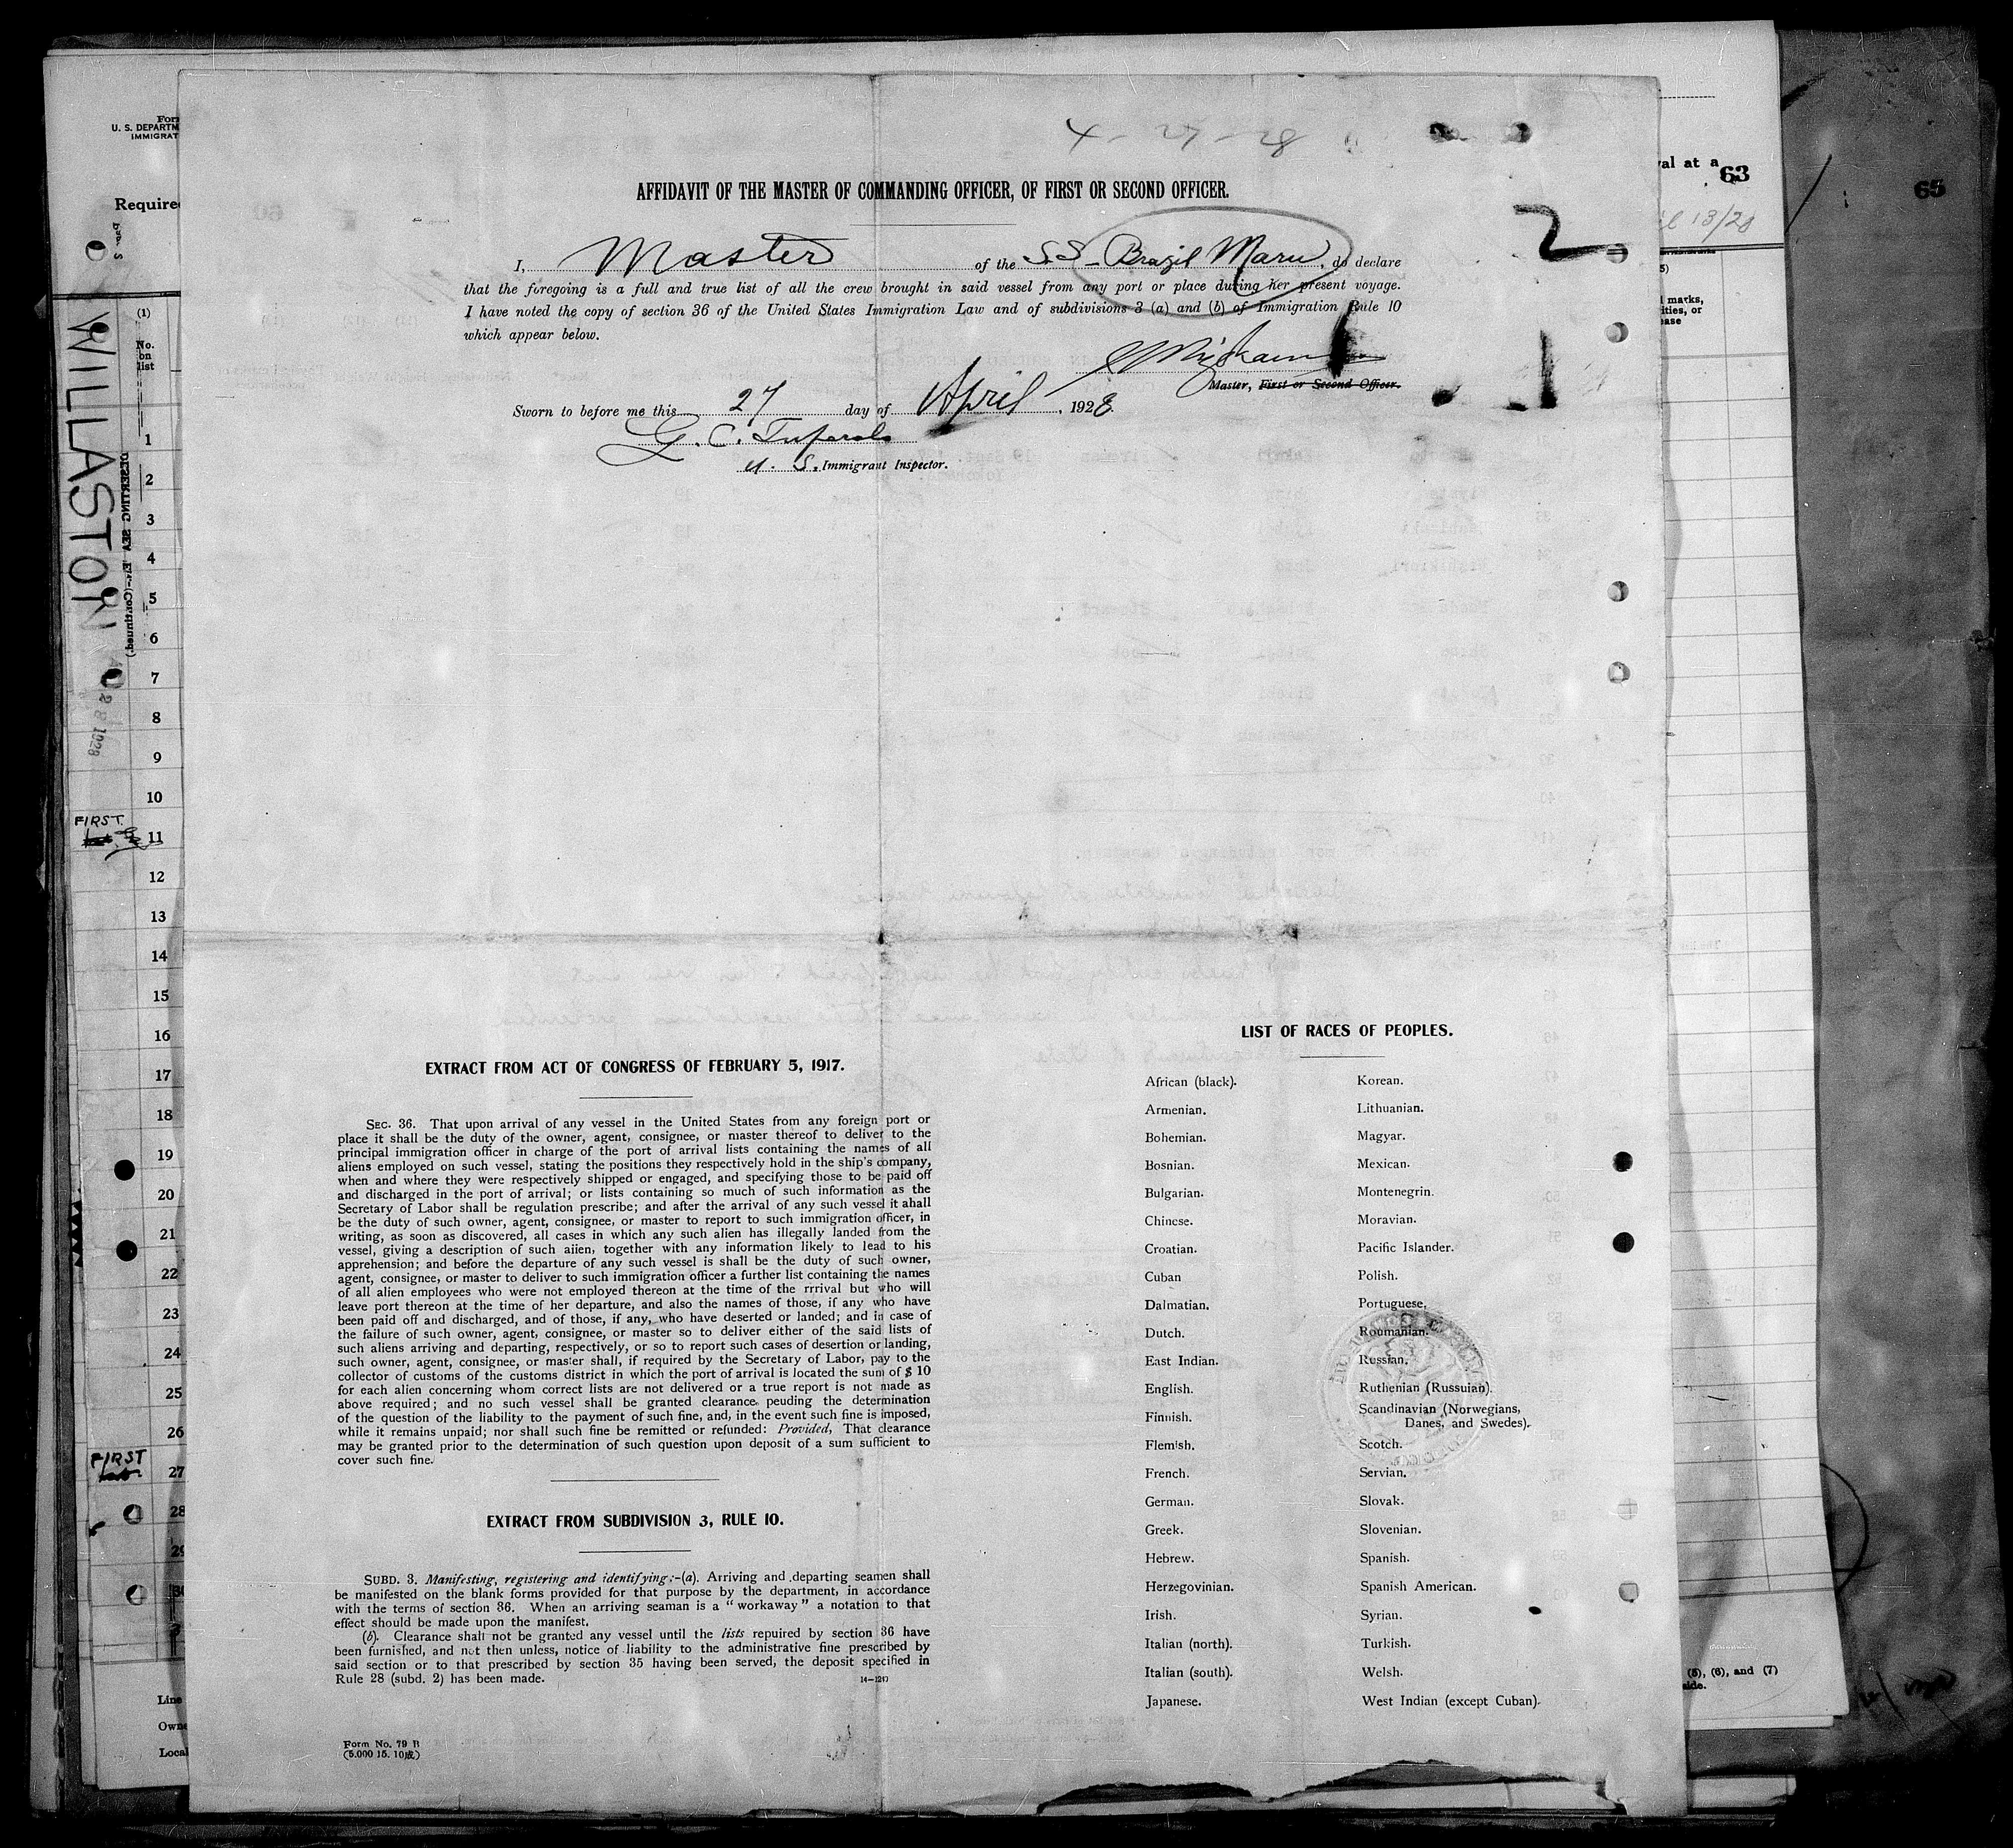 4-27-28
AFFIDAVIT OF THE MASTER OF COMMANDING OFFICER, OF FIRST OR SECOND OFFICER.
I, Master of the S.S. Brazil Maru, do declare
that the foregoing is a full and true list of all the crew brought in said vessel from any port or place during her present voyage.
I have noted the copy of section 36 of the United States Immigration Law and of subdivisions 3 (a) and (b) of Immigration Rule 10
which appear below.
Master, First or Second Officer.
Sworn to before me this 27 day of April, 1928
G. C.
U. S. Immigrant Inspector.
2
EXTRACT FROM ACT OF CONGRESS OF FEBRUARY 5, 1917.
SEC. 36. That upon arrival of any vessel in the United States from any foreign port or
place it shall be the duty of the owner, agent, consignee, or master thereof to deliver to the
principal immigration officer in charge of the port of arrival lists containing the names of all
aliens employed on such vessel, stating the positions they respectively hold in the ship's company,
when and where they were respectively shipped or engaged, and specifying those to be paid off
and discharged in the port of arrival; or lists containing so much of such information as the
Secretary of Labor shall be regulation prescribe; and after the arrival of any such vessel it ahall
be the duty of such owner, agent, consignee, or master to report to such immigration officer, in
writing, as soon as discovered, all cases in which any such alien has illegally landed from the
vessel, giving a description of such aiien, together with any information likely to lead to his
apprehension; and before the departure of any such vessel is shall be the duty of such owner,
agent, consignee, or master to deliver to such immigration officer a further list containing the names
of all alien employees who were not employed thereon at the time of the rrrival but who will
leave port thereon at the time of her departure, and also the names of those, if any who have
been paid off and discharged, and of those, if any, who have deserted or landed; and in case of
the failure of such owner, agent, consignee, or master so to deliver either of the said lists of
such aliens arriving and departing, respectively, or so to report such cases of desertion or landing,
such owner, agent, consignee, or master shall, if required by the Secretary of Labor, pay to the
collector of customs of the customs district in which the port of arrival is located the sum of $ 10
for each alien concerning whom correct lists are not delivered or a true report is not made as
above required; and no such vessel shall be granted clearance. peuding the determination
of the question of the liability to the payment of such fine, and, in the event such fine is imposed,
while it remains unpaid; nor shall such fine be remitted or refunded: Provided, That clearance
may be granted prior to the determination of such question upon deposit of a sum sufficient to
cover such fine.
EXTRACT FROM SUBDIVISION 3, RULE 10.
SUBD. 3. Manifesting, registering and identifying:-(a). Arriving and departing seamen shall
be manifested on the blank forms provided for that purpose by the department, in accordance
with the terms of section 36. When an arriving seaman is a "workaway" a notation to that
effect should be made upon the manifest.
(b). Clearance shall not be granted any vessel until the lists repuired by section 36 have
been furnished, and not then unless, notice of liability to the administrative fine prescribed by
said section or to that prescribed by section 35 having been served, the deposit specified in
Rule 28 (subd. 2) has been made.
Form No. 79 B
LIST OF RACES OF PEOPLES.
African (black).
Armenian.
Bohemian.
Bosnian.
Bulgarian.
Chinese.
Croatian.
Cuban
Dalmatian.
Dutch.
East Indian.
English.
Finnish.
Flemish.
French.
German.
Greek.
Hebrew.
Herzegovinian.
Irish.
Italian (north).
Italian (south).
Japanese.
Korean.
Lithuanian.
Magyar.
Mexican.
Montenegrin.
Moravian.
Pacific Islander.
Polish.
Portuguese.
Roumanian.
Russian.
Ruthenian (Russuian).
Scandinavian (Norwegians,
Danes, and Swedes).
Scotch.
Servian.
Slovak.
Slovenian.
Spanish.
Spanish American.
Syrian.
Turkish.
Welsh.
West Indian (except Cuban).
U. S. DEPARTM
IMMIGRAT
Require
WILLASTON
DESERTING SEA
(Continued.)
28 1928
(1)
No.
on
list
1
2
3
4
5
6
7
8
9
10
FIRST.
11
12
13
14
15
16
17
18
19
20
21
22
23
24
25
26
FIRST
27
28
29
Line
Owne
Local
val at a
63
65
13/28
marks,
ities, or
ease
(5), (6), and (7)
side.